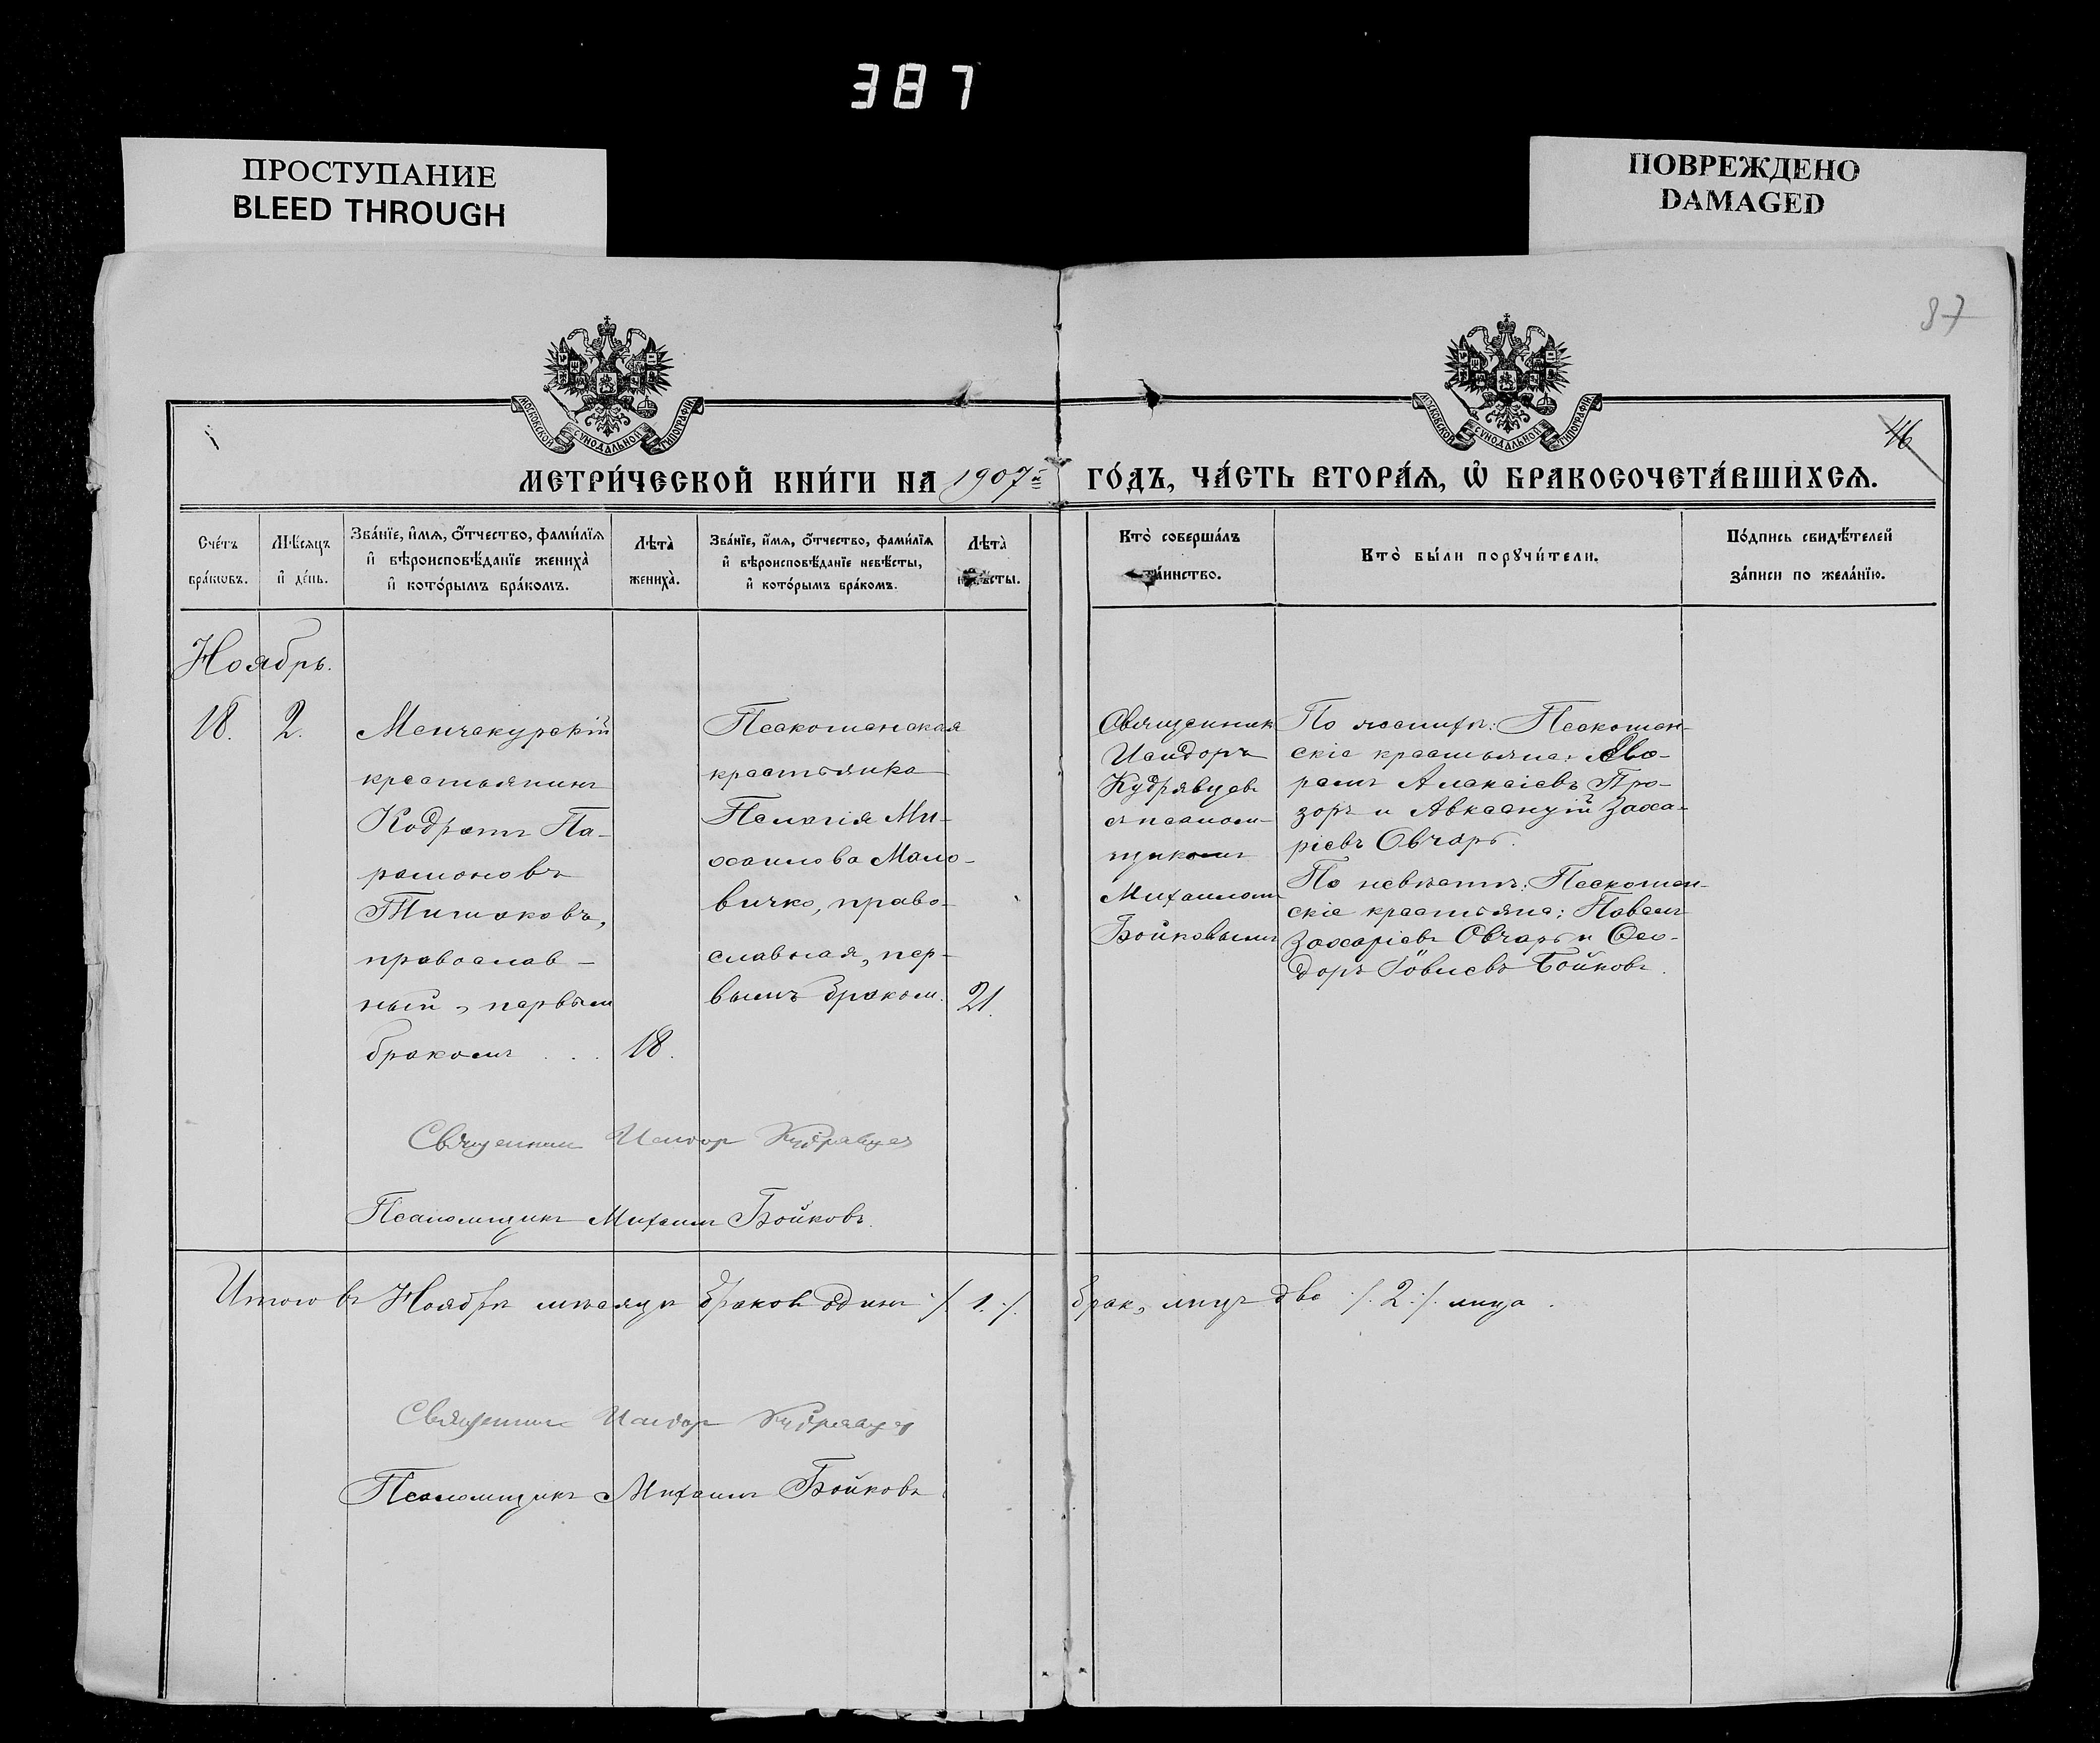 387
ПРОСТУПАНИЕ
BLEED THROUGH
ПОВРЕЖДЕНО
DAMAGED
87
МОСКОВСКОЙ СѴНОДАЛЬНОЙ ТИПОГРАФІИ
МОСКОВСКОЙ СѴНОДАЛЬНОЙ ТИПОГРАФІИ
46
МЕТРИ́ЧЕСКОЙ КНИ́ГИ НА 1907й ГО́ДЪ, ЧА́СТЬ ВТОРА́Ѧ, Ѽ БРАКОСОЧЕТА́ВШИХСѦ.
Сче́тъ бра́кѡвъ.
Мѣ́сѧцъ и҆ де́нь.
Зва́нїе, и҆́мѧ, ѻ҆́тчество, фами́лїѧ
и҆ вѣроисповѣ́данїе жениха̀
и҆ кото́рымъ бра́комъ.
Лѣта̀ жениха̀.
Зва́нїе, и҆́мѧ, ѻ҆́тчество, фами́лїѧ
и҆ вѣроисповѣ́данїе невѣ́сты,
и҆ кото́рымъ бра́комъ.
Лѣта̀
Кто̀ соверша́лъ
та́инство.
Кто̀ бы́ли порꙋчи́тели.
По́дпись свидѣ́телей
за́писи по жела́нїю.
Ноябрь.
18. 2.
Менчекурскій
крестьянинъ
Кодратъ Па-
рамоновъ
православ-
ный, первымъ
бракомъ . . . 18.
Пескошанская
крестьянка
Пелагія Ми-
хаилова Мало-
вичко, право-
славная, пер-
вымъ бракомъ. 21.
Священникъ
Исидоръ
Кудрявцевъ
съ псалом-
щикомъ
Михаиломъ
Бойковымъ
По женихѣ: Пескошан-
скіе крестьяне:
Алексіевъ Про-
зоръ и Авксентій Заха-
ріевъ Овчаръ.
По невѣстѣ: Пескошан-
скіе крестьяне: Павелъ
Захаріевъ Овчаръ и Ѳео-
доръ Бойковъ.
Священникъ Исидор Кудрявцев
Псаломщикъ Михаилъ Бойковъ.
Итого въ Ноябрѣ мѣсяцѣ браков один ./. 1. ./. брак, лицъ два ./. 2 ./. лица.
Священникъ Исидор Кудрявцев
Псаломщикъ Михаилъ Бойковъ